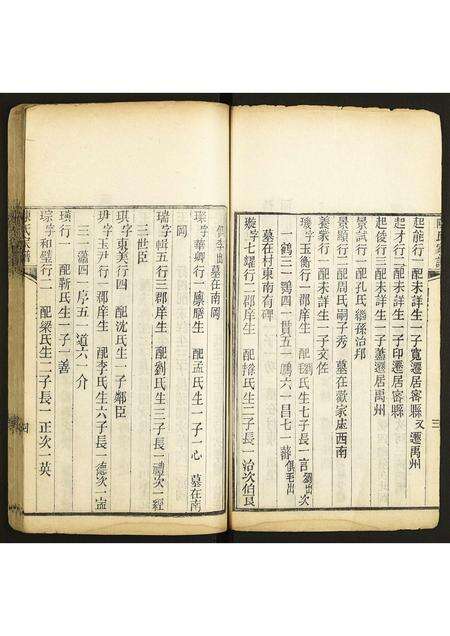 起能行一 配未詳生一子寬遷居密縣又遷禹州
起才行一 配未詳生一子印遷居密縣
起後行三 配未詳生一子 遷居禹州
景試行一 配孔氏繼孫治邦
景顯行二 配周氏嗣子秀 墓在 家庄西南
養蒙行一 配未詳生一子文佐
璣字玉衡行一郡庠生 配劉氏生七子長一言 次
一鶴三一鶚四一貫五一鵬六一昌七一
墓在村東南有碑
璇字七耀行二郡庠生 配 氏生二子長一治次伯良
墓在南岡
字華卿行一廩膳生 配孟氏生一子一心 墓在南
岡
瑞字輯五行三郡庠生 配劉氏生三子長一禮次一經
三世臣
琪字東美行四 配沈氏生一子鄰臣
玥字玉尹行一郡庠生 配李氏生六子長一德次一
三一藩四一序五一道六一介
璜行一 配靳氏生一子一善
琮字和璧行二 配梁氏生二子長一正次一英